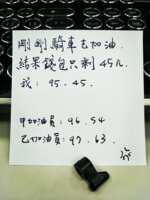 剛剛騎車去加油
結果錢包只剩45元
我：95.45.
甲加油員：96.54
乙加油員：97.63.